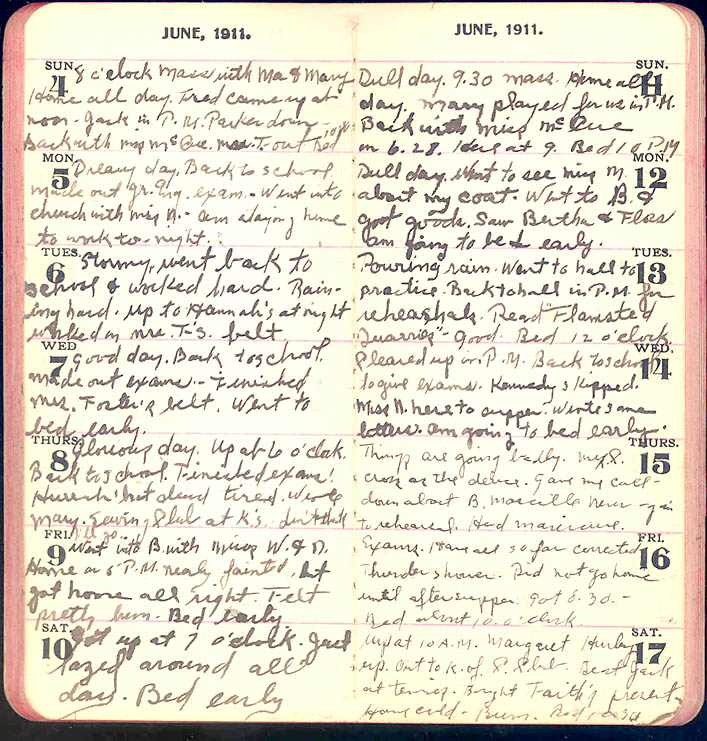 JUNE, 1911.
SUN.
4
8 o'clock Mass with Ma & Mary
Home all day. Fred came up at
noon - Jack in P.M. Parker down -
Back with miss McCue. T- out Bed
MON.
5
Dreary day. Back to school
made out gr. Eng. exam. - Went into
church with miss N. - am staying home
to work to-night.
TUES.
6
Stormy, went back to
school & worked hard. Rain-
ing hard. up to Hannah's at night
worked on mrs. T-s. belt
WED
7
good day. Back to school.
made out exams. - Finished
Mrs. Foster's belt. Went to
bed early.
THURS.
8
Glorious day. Up at 6 o'clock.
Back to school. Finished exams!
Hurrah! but dead tired. Wrote
Mary. Sewing Club at K's. don't think
I'll go.
FRI.
9
Went into B. with Misses W. & N.
Home on 5 P.M. nearly fainted, but
got home all right. Felt
pretty bum. Bed early.
SAT.
10
Got up at 7 o'clock. Just
lazed around all
day. Bed early
JUNE, 1911.
SUN.
11
Dull day. 9.30 mass. Home all
day. Mary played for us in P.M.
Back with miss McCue
on 6.28. at 9. Bed 10 P.M
MON.
12
Dull day. Went to see miss M.
about my coat. Went to B. &
got goods. Saw Bertha & Floss
am going to bed early.
TUES.
13
Pouring rain. Went to hall to
practice. Back to hall in P.M. for
rehearsals. Read "Flamsted
Quarries" - Good. Bed 12 o'clock.
WED.
14
Cleared up in P.M. Back to school
to give exams. Kennedy skipped.
Miss N. here to supper. Wrote some
letters. am going to bed early.
THURS.
15
Things are going badly.
cross as the deuce. Gave me call-
down about B. Marcella here -
to rehearsal. Had manicure.
FRI.
16
Exams. Have all so far corrected
Thunder shower. Did not go home
until after supper. Got 6.30. -
Bed about 10. o'clock.
SAT.
17
Up at 10 A.M. Margaret Hurley
up. Out to K. of Club. Beat Jack
at tennis. Bought Faith's present.
Have cold - Bum. Bed